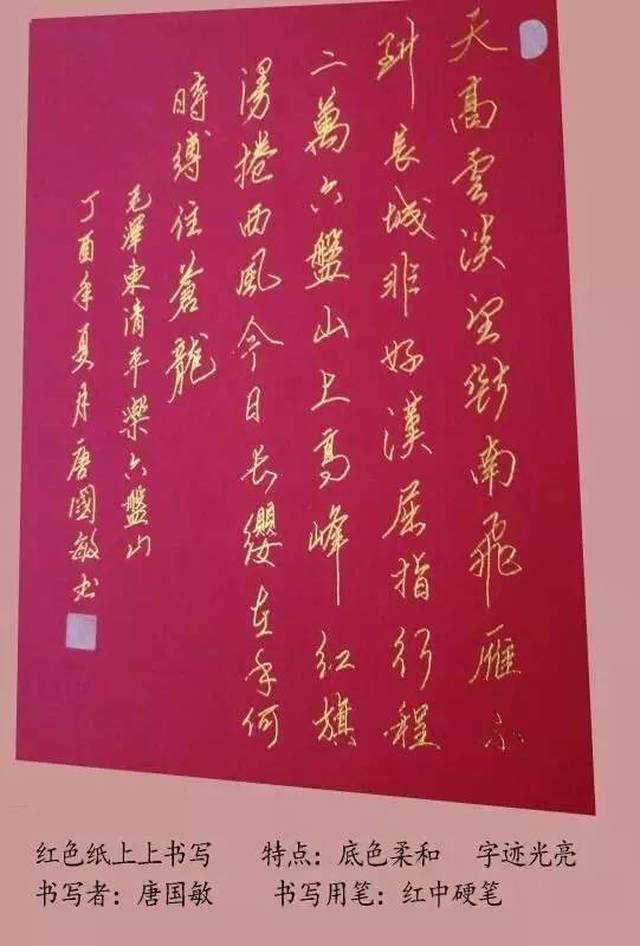 天高雲淡望斷南飛雁不
到長城非好漢屈指行程
二萬六盤山上高峰红旗
漫捲西風今日长纓在手何
時縛住蒼龍
毛澤東清平樂六盤山
丁酉年夏月唐國敏书
红色纸上上书写 特点：底色柔和 字迹光亮
书写者：唐国敏 书写用笔：红中硬笔